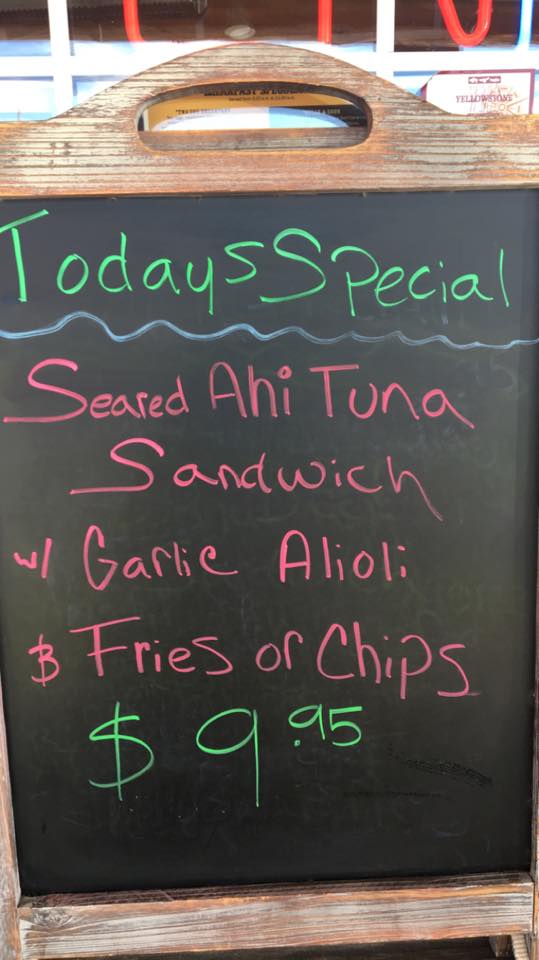 BREAKFAST SPECIALS
YELLOWSTONE
Todays Special
Seared Ahi Tuna
Sandwich
w/ Garlic Alioli
& Fries or Chips
$9.95